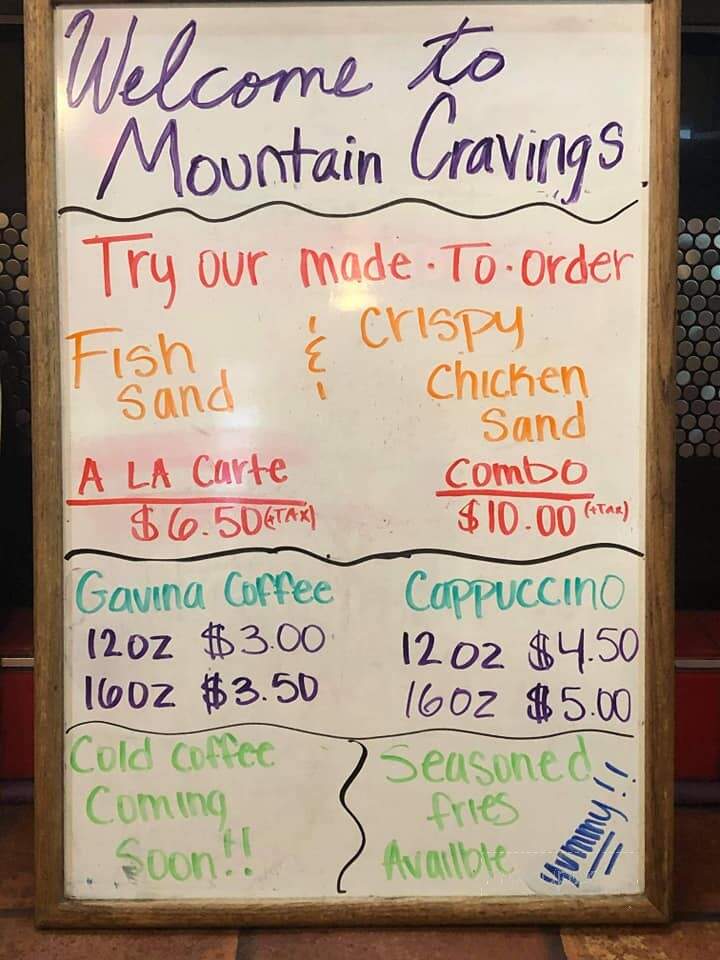 Welcome to
Mountain Cravings
Try our made·To·order
Fish
Sand
&
Crispy
Chicken
Sand
A LA Carte
$6.50 (+TAX)
Combo
$10.00 (+TAX)
Gavina Coffee
12oz $3.00
16oz $3.50
Cappuccino
12oz $4.50
16oz $5.00
Cold Coffee
Coming
Soon!!
Seasoned
fries
Availble
Yummy!!